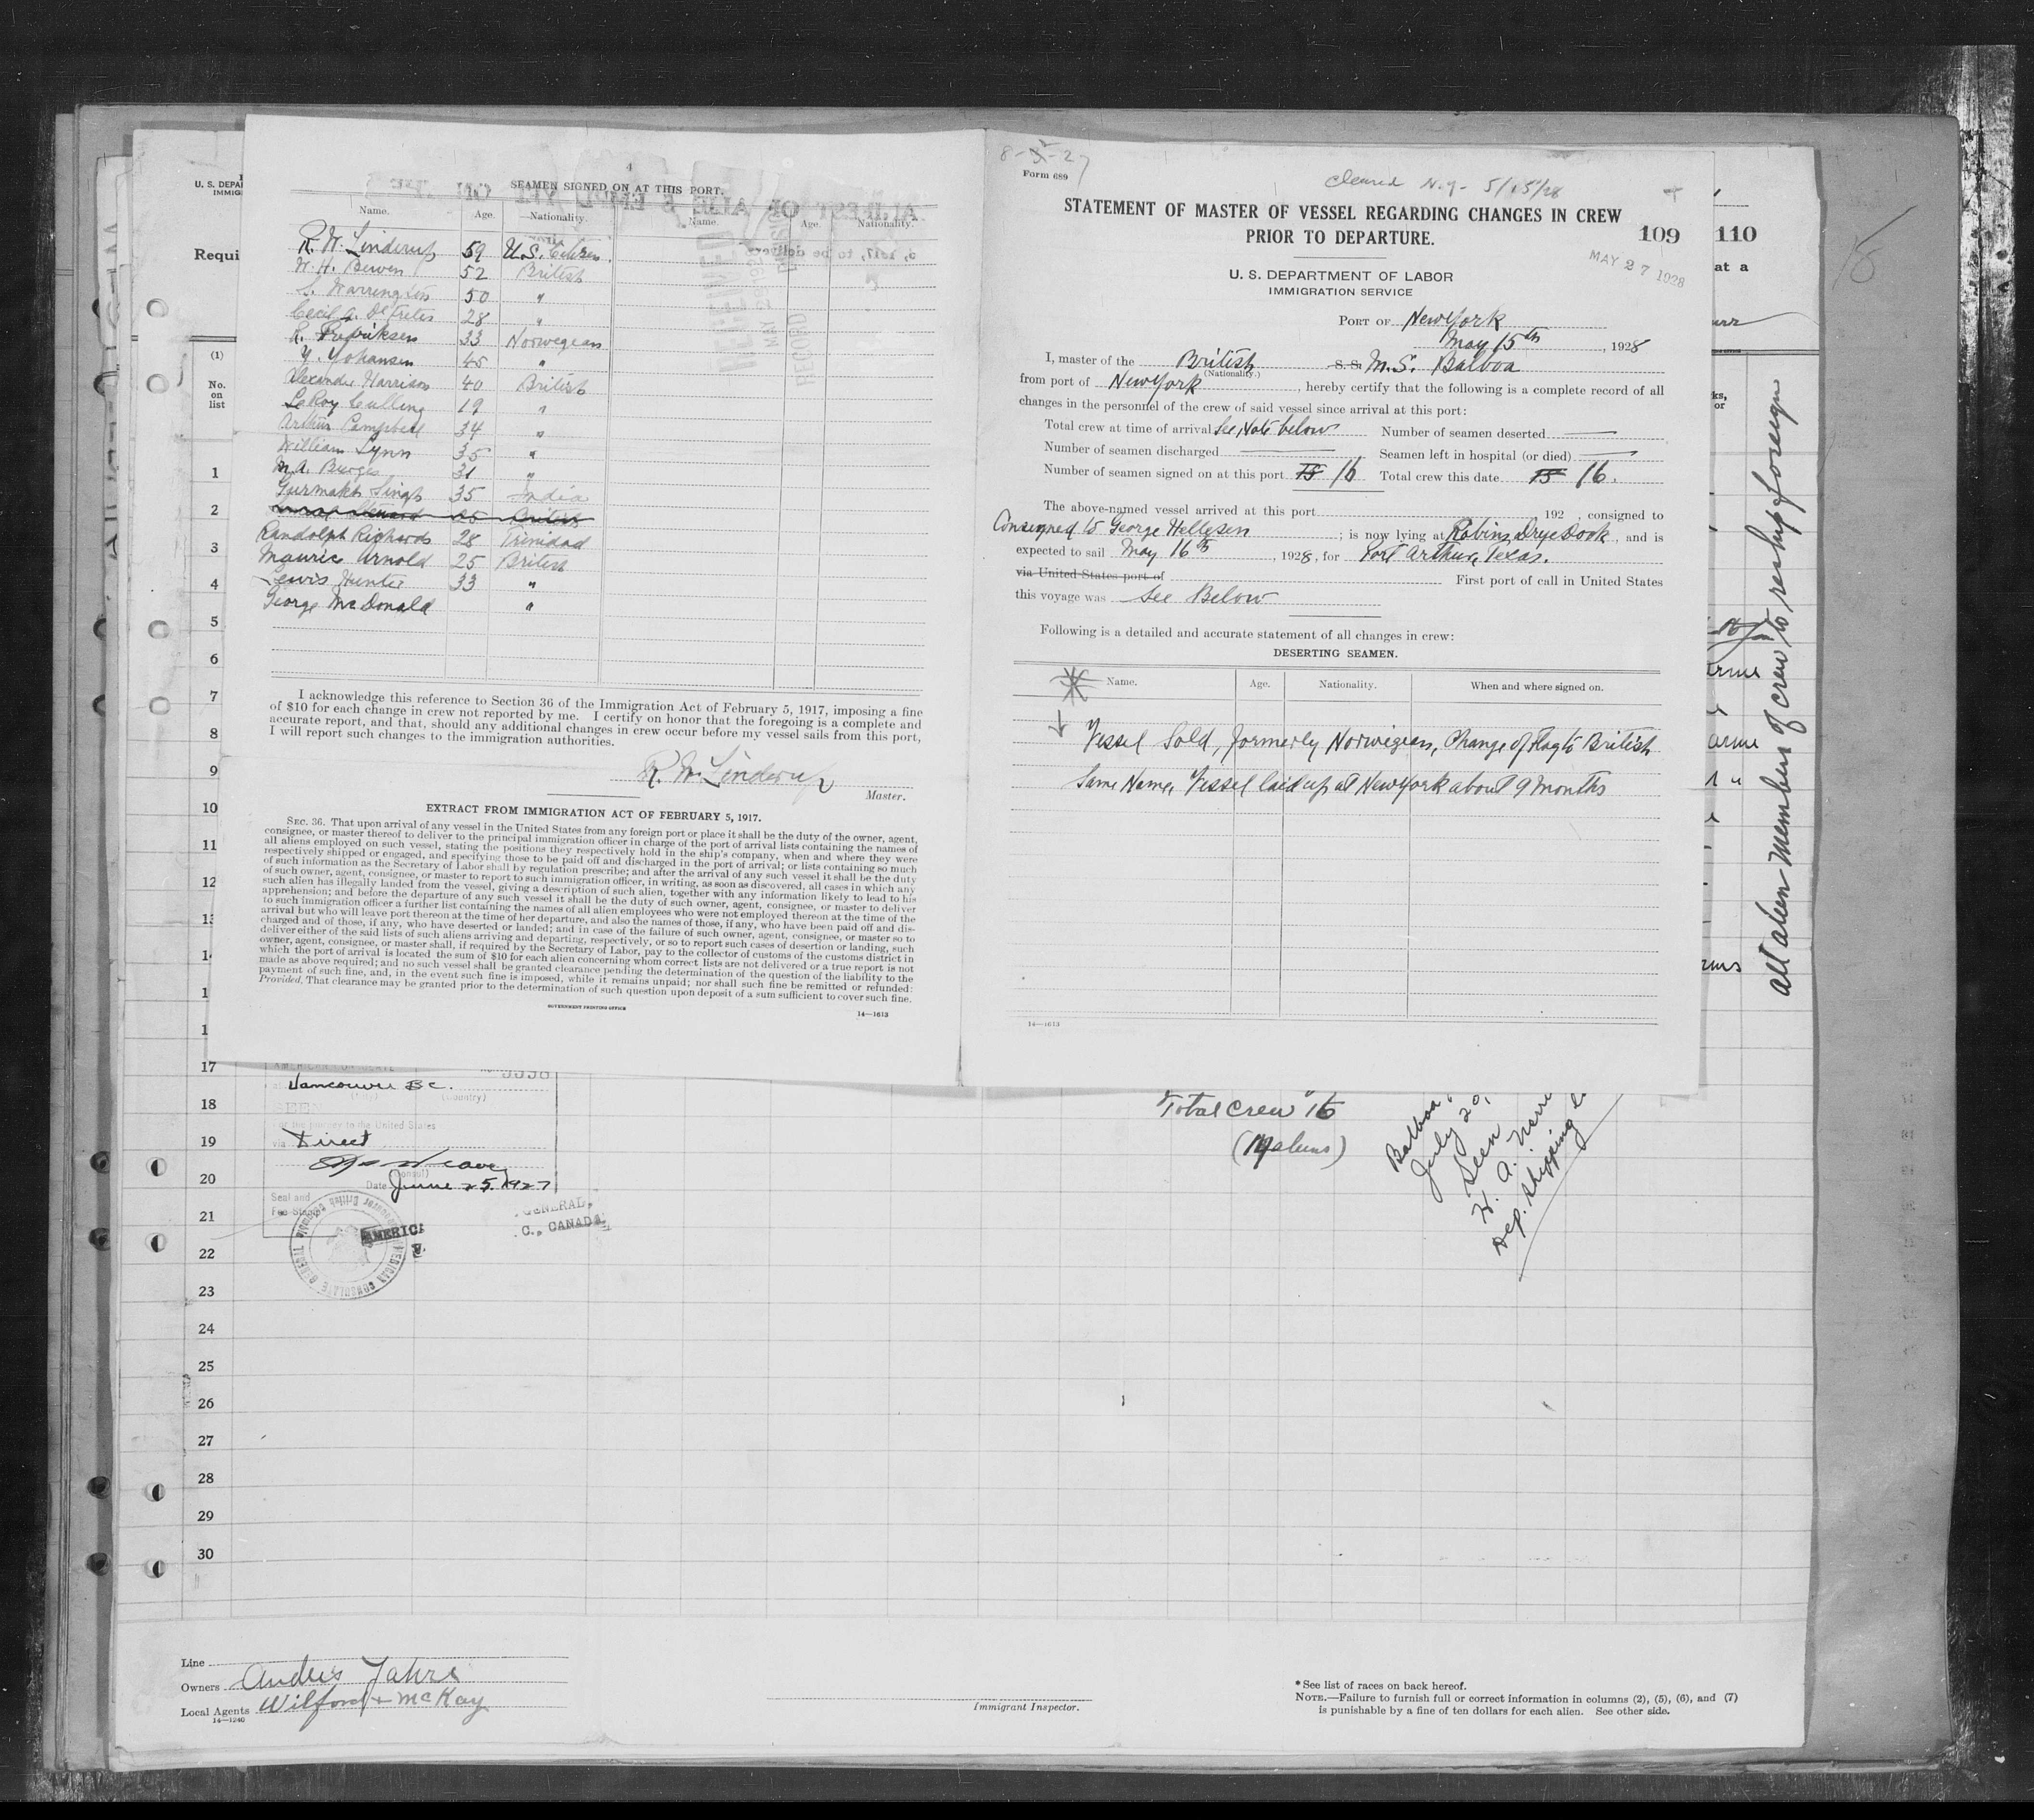 4
SEAMEN SIGNED ON AT THIS PORT.
Name. Age. Nationality. Name. Age. Nationality.
R. W. Linderup 59 U.S. Citizen.
52 British
S. Warrington 50 "
Cecil A. De Freites 28 "
R. Fredriksen 33 Norwegian
Y. Yohansen 45 "
Alexander Harrison 40 British
LeRoy Culling 19 "
Arthur Campbell 34 "
William Lynn 35 "
M. A. Burges 31 "
Gurmakh Singh 35 India
25 British
Randolph Richards 28 Trinidad
Maurice Arnold 25 British
Lewis Hunter 33 "
George McDonald "
I acknowledge this reference to Section 36 of the Immigration Act of February 5, 1917, imposing a fine
of $10 for each change in crew not reported by me. I certify on honor that the foregoing is a complete and
accurate report, and that, should any additional changes in crew occur before my vessel sails from this port,
I will report such changes to the immigration authorities.
R. W. Linderup
Master.
EXTRACT FROM IMMIGRATION ACT OF FEBRUARY 5, 1917.
SEC. 36. That upon arrival of any vessel in the United States from any foreign port or place it shall be the duty of the owner, agent,
consignee, or master thereof to deliver to the principal immigration officer in charge of the port of arrival lists containing the names of
all aliens employed on such vessel, stating the positions they respectively hold in the ship's company, when and where they were
respectively shipped or engaged, and specifying those to be paid off and discharged in the port of arrival; or lists containing so much
of such information as the Secretary of Labor shall by regulation prescribe; and after the arrival of any such vessel it shall be the duty
of such owner, agent, consignee, or master to report to such immigration officer, in writing, as soon as discovered, all cases in which any
such alien has illegally landed from the vessel, giving a description of such alien, together with any information likely to lead to his
apprehension; and before the departure of any such vessel it shall be the duty of such owner, agent, consignee, or master to deliver
to such immigration officer a further list containing the names of all alien employees who were not employed thereon at the time of the
arrival but who will leave port thereon at the time of her departure, and also the names of those, if any, who have been paid off and dis-
charged and of those, if any, who have deserted or landed; and in case of the failure of such owner, agent, consignee, or master so to
deliver either of the said lists of such aliens arriving and departing, respectively, or so to report such cases of desertion or landing, such
owner, agent, consignee, or master shall, if required by the Secretary of Labor, pay to the collector of customs of the customs district in
which the port of arrival is located the sum of $10 for each alien concerning whom correct lists are not delivered or a true report is not
made as above required; and no such vessel shall be granted clearance pending the determination of the question of the liability to the
payment of such fine, and, in the event such fine is imposed, while it remains unpaid; nor shall such fine be remitted or refunded:
Provided, That clearance may be granted prior to the determination of such question upon deposit of a sum sufficient to cover such fine.
GOVERNMENT PRINTING OFFICE
14—1613
8-5-27
Form 689
Cleared N.Y. - 5/15/28
STATEMENT OF MASTER OF VESSEL REGARDING CHANGES IN CREW
PRIOR TO DEPARTURE.
109
MAY 27 1928
U. S. DEPARTMENT OF LABOR
IMMIGRATION SERVICE
PORT OF New York
May 15th, 1928
I, master of the British S. S. M.S. Balboa
(Nationality.)
from port of New York, hereby certify that the following is a complete record of all
changes in the personnel of the crew of said vessel since arrival at this port:
Total crew at time of arrival See Note below Number of seamen deserted
Number of seamen discharged Seamen left in hospital (or died)
Number of seamen signed on at this port 15 16 Total crew this date 15 16.
The above-named vessel arrived at this port 192 , consigned to
Consigned to George Hellesen; is now lying at Robins Drye Dook, and is
expected to sail May 16th, 1928, for Port Arthur, Texas.
via United States port of First port of call in United States
this voyage was See Below
Following is a detailed and accurate statement of all changes in crew:
DESERTING SEAMEN.
Name. Age. Nationality. When and where signed on.
Vessel Sold, formerly Norwegian, Change of Flag to British
Same Name, Vessel laid up at New York about 9 months
14—1613
U. S. DEPA
IMMIG
Requi
(1)
No.
on
list
1
2
3
4
5
6
7
8
9
10
11
12
17
18
19
20
21
22
23
24
25
26
27
28
29
30
110
at a
all alien members of crew to reship foreign
Vancouver B.C.
(Country)
SEEN
For the journey to the United States
via Direct
Date June 25, 1927
Seal and
Fee Stamp
AMERICAN CONSULATE GENERAL
GENERAL,
C., CANADA
Total Crew 16
Balboa
July 20,
Seen
Dep. Shipping
Line
Owners Anders Jahre
Local Agents Wilford & McKay
14—1240
Immigrant Inspector.
* See list of races on back hereof.
NOTE.—Failure to furnish full or correct information in columns (2), (5), (6), and (7)
is punishable by a fine of ten dollars for each alien. See other side.